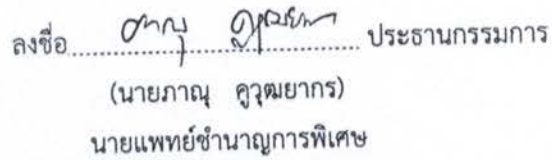 ลงชื่อ ภาณุ คูวุฒยากร ประธานกรรมการ
(นายภาณุ คูวุฒยากร)
นายแพทย์ชำนาญการพิเศษ